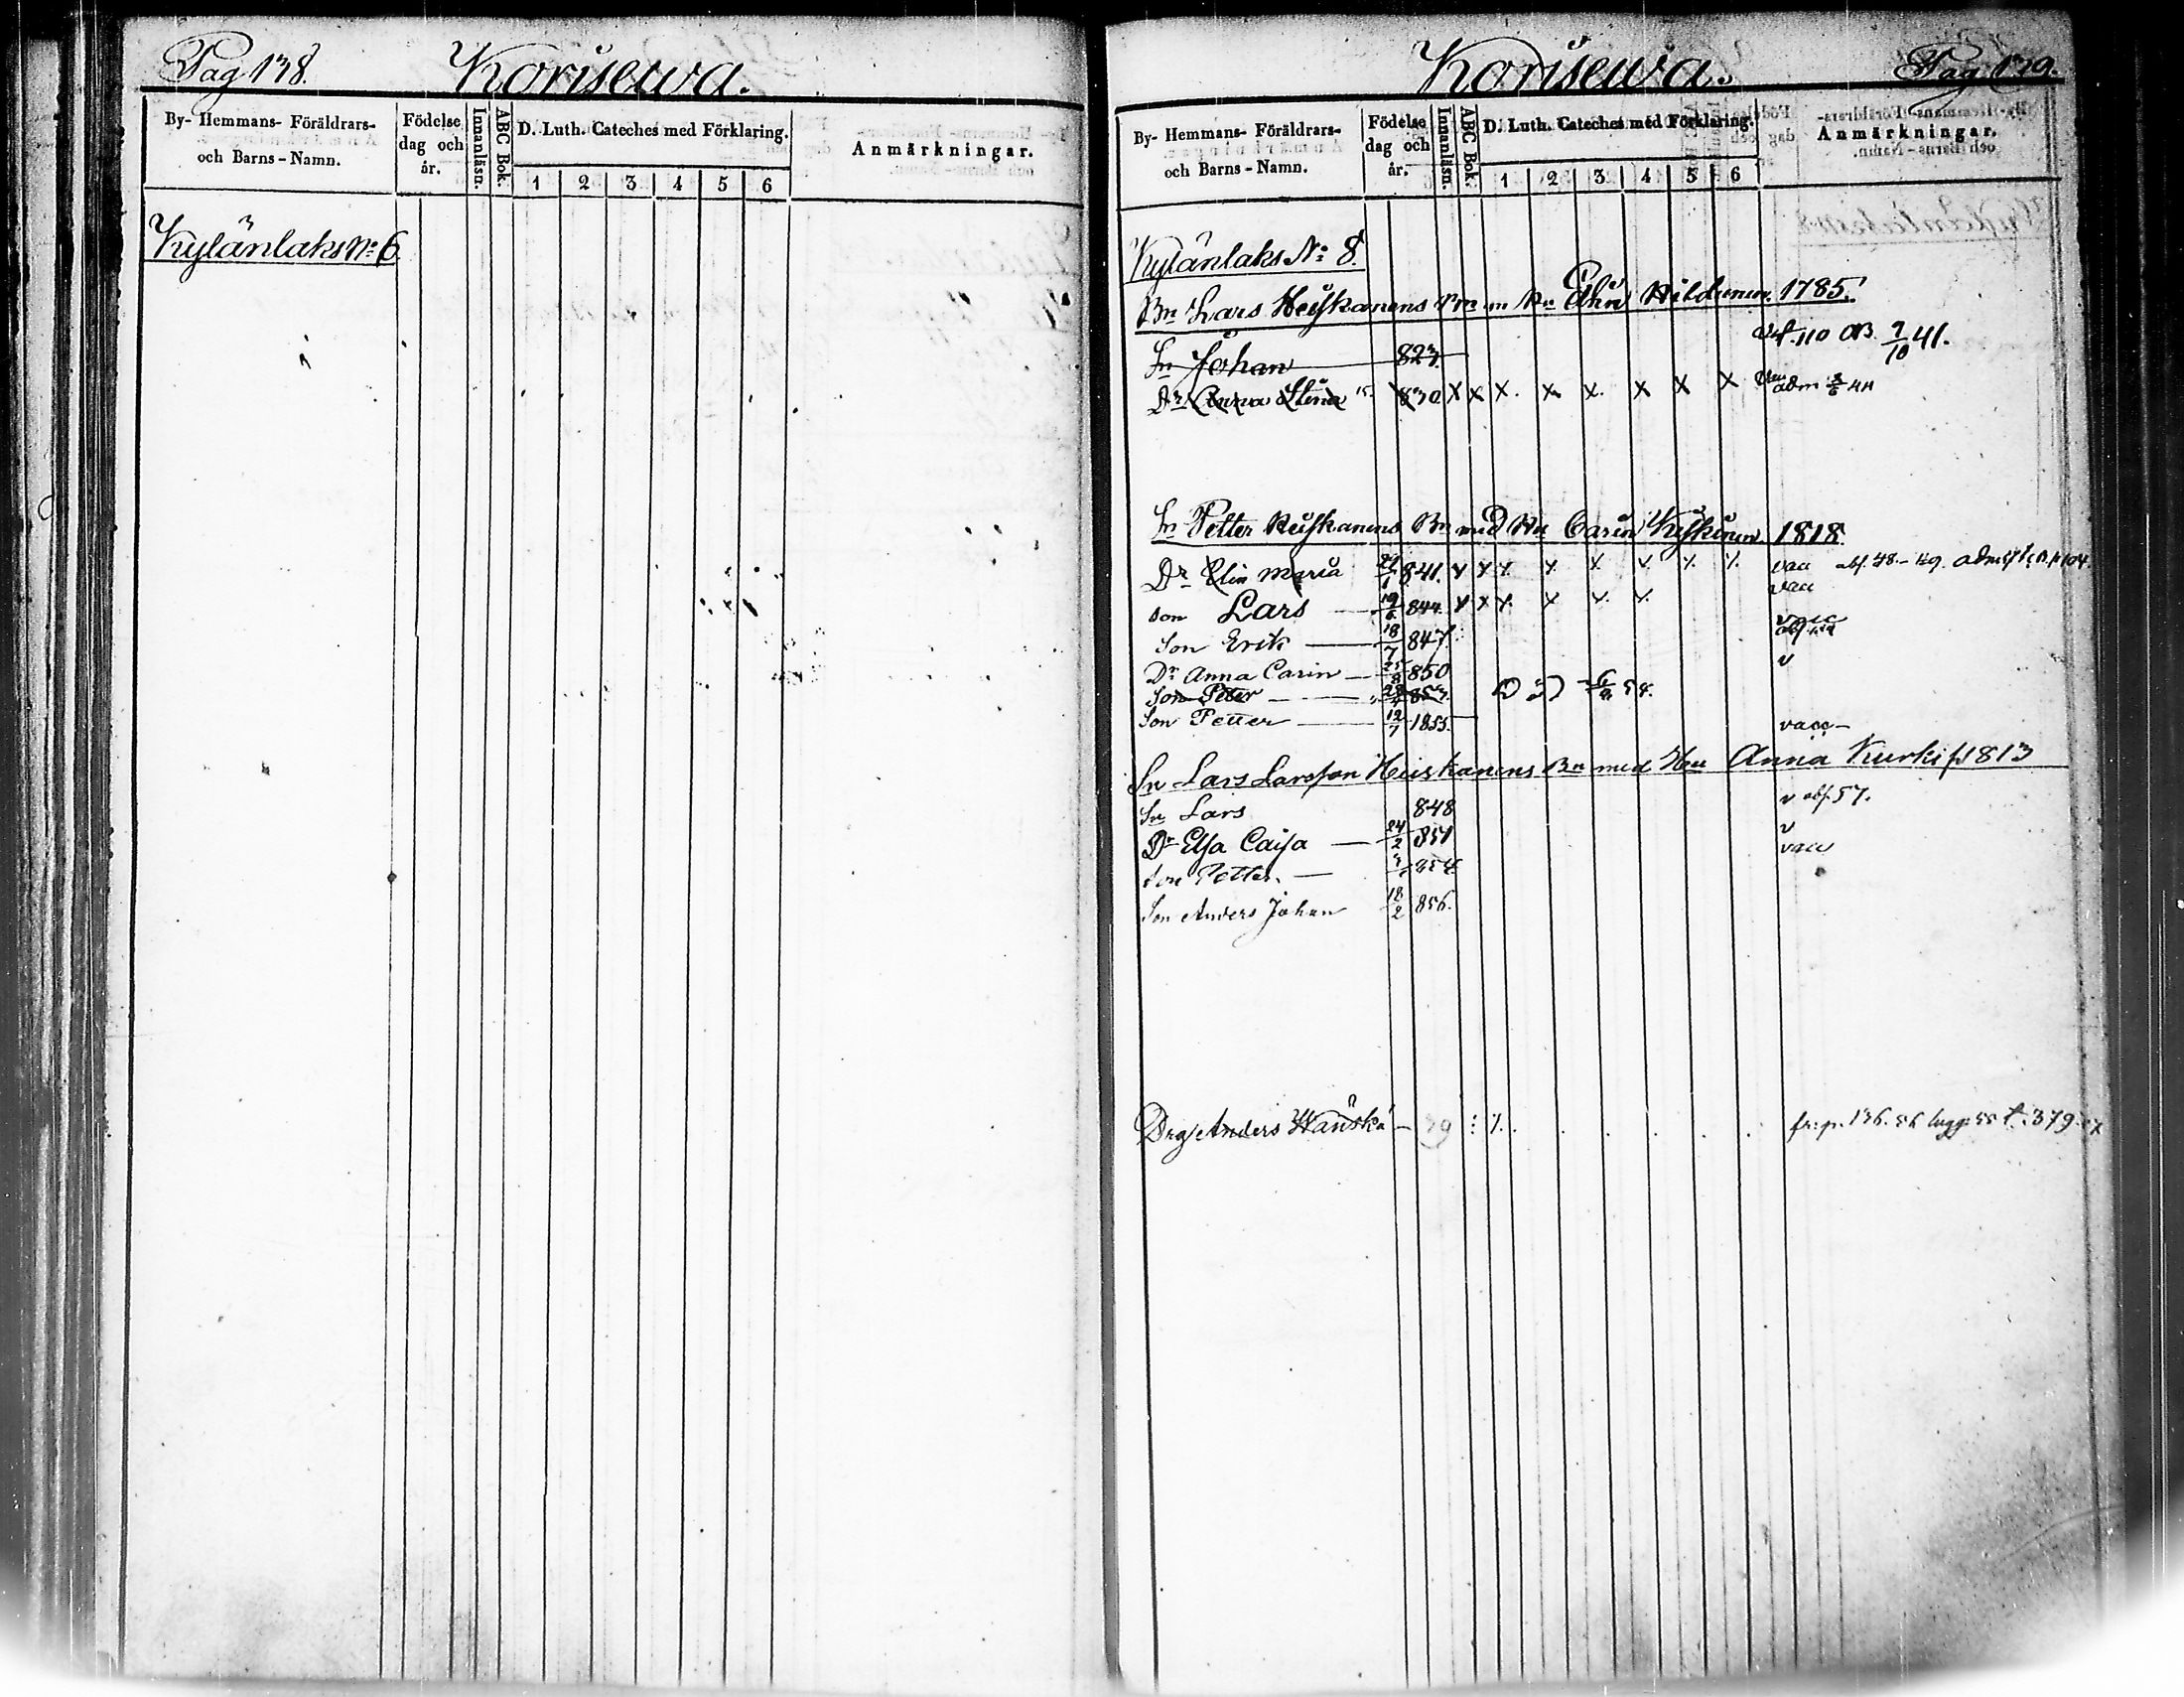 Pag 138. Korisewa.
By- Hemmans- Föräldrars- och Barns-Namn. Födelse dag och år. Innanläsn. ABC Bok. D. Luth. Cateches med Förklaring. 1 2 3 4 5 6 Anmärkningar.
Kylänlaks No 6.
Korisewa. Pag 139.
By- Hemmans- Föräldrars- och Barns-Namn. Födelse dag och år. Innanläsn. ABC Bok. D. Luth. Cateches med Förklaring. 1 2 3 4 5 6 Anmärkningar.
Kylänlaks No 8.
Bn Lars Heiskanens Bn m Hu 1785.
Sn Johan 823. 110 7/10 41.
Dr Anna Stina 15. 830 X X X. X X. X X X adm
Sn Petter Heiskanens Bn med Hu Carin 1818.
Dr Elin Maria 841. x x x. x x x. x. x. vacc abs. 48.
son Lars 19/6 844. x x x. x x. x. vacc
Son Erik 18/7 847. vacc
Dr Anna Carin 25/8 850 v
Son Peter 28/4 853. 54.
Son Petter 12/7 1855. vacc
Sn Lars Larsson Heiskanens Bn med Hu Anna Kurki f 1813
Sn Lars 848 v abs. 57.
Dr Elsa Caisa 24/2 851 v
son Petter. 854 vacc
Son Anders Johan 18/2 856.
Drg Anders 39 fr. p. 136. 56 t. 379.